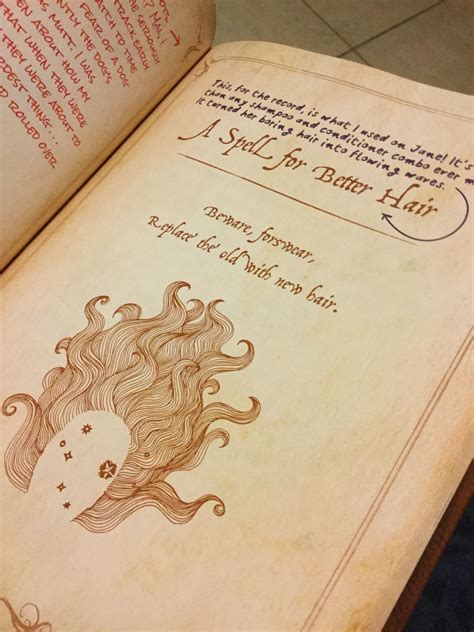 TRACK EARLY
OF A DOG
TO THE
THE DOG'S
MUTT. I WAS
ABOUT HOW MY
WHEN THEY WERE
THEY WERE ABOUT TO
THING...
ROLLED OVER
This, for the record, is what I used on Jane! It's
than any shampoo and conditioner combo ever
It turned her boring hair into flowing waves.
A Spell for Better Hair
Beware, forswear,
Replace the old with new hair.